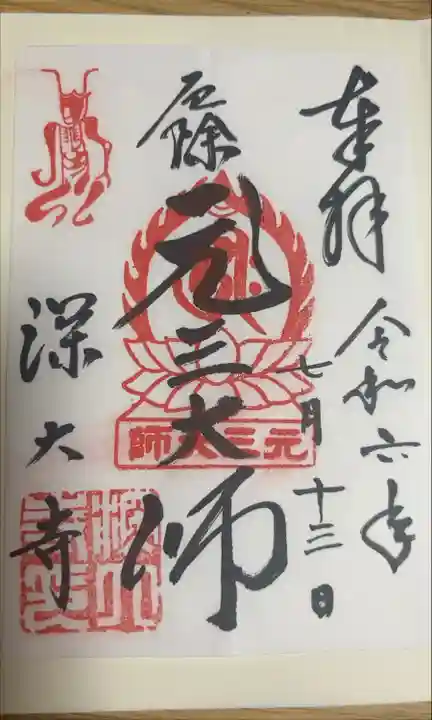 奉拝
令和六年
七月十三日
元三大師
元三大師
深大寺